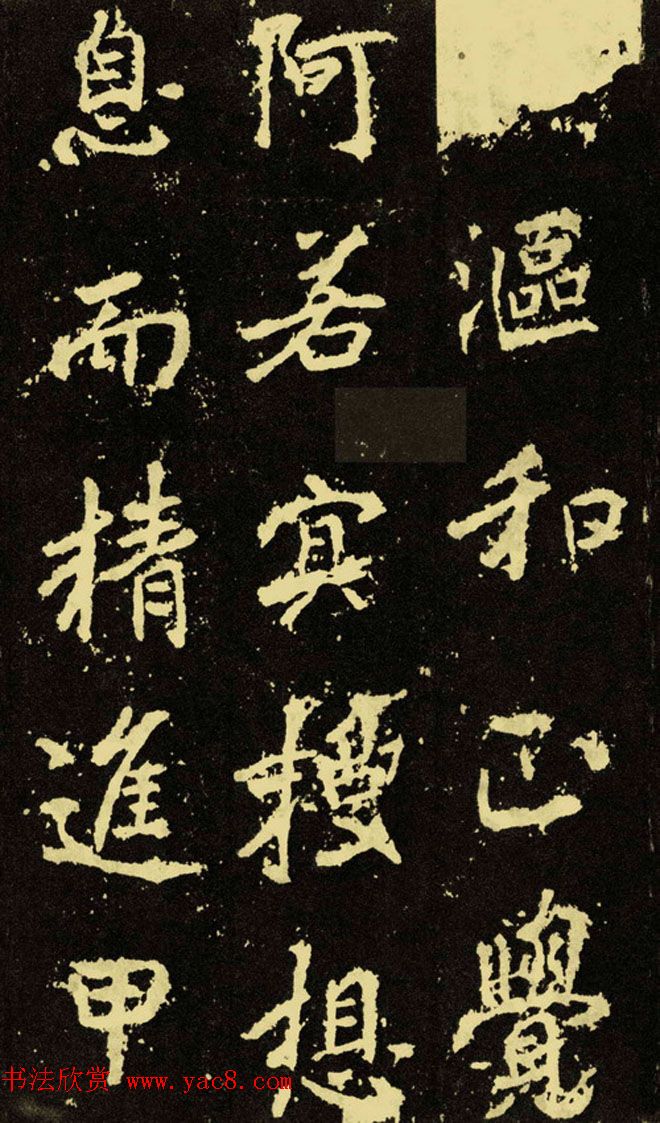 漚和正覺
阿若冥搜想
息而精進甲
书法欣赏 www.yac8.com